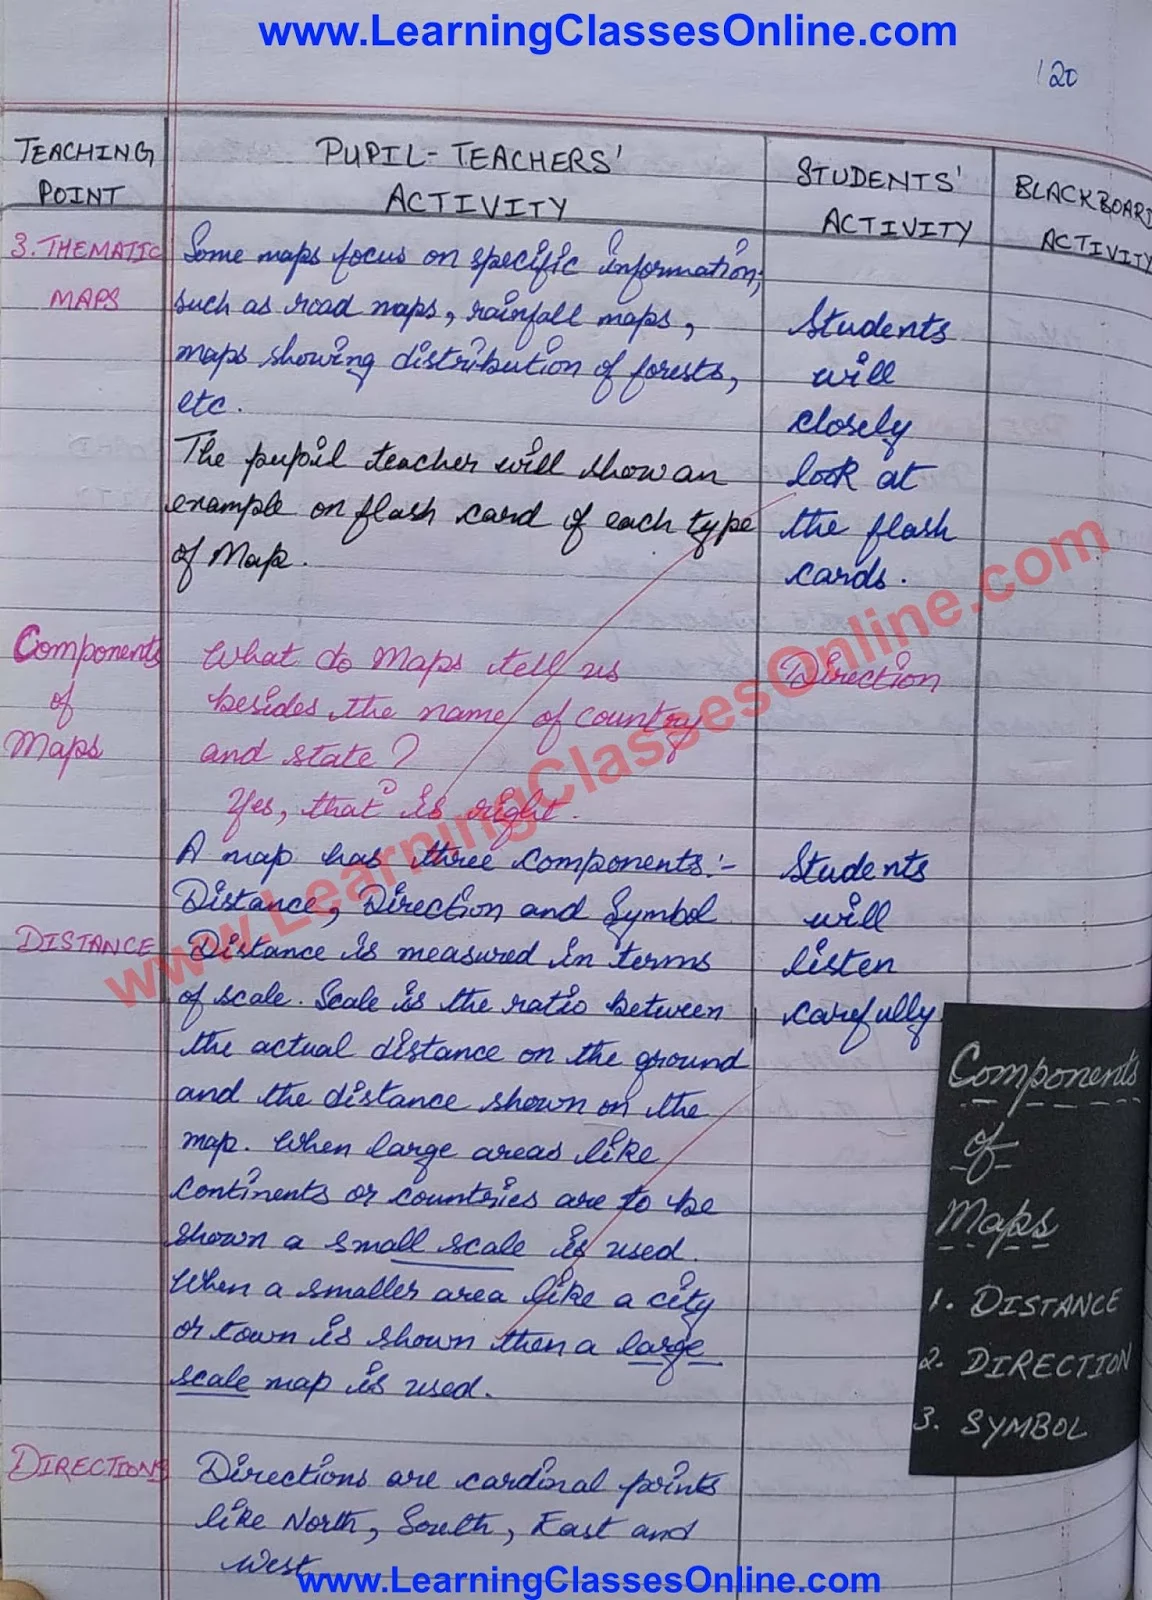 www.LearningClassesOnline.com
120
TEACHING POINT
PUPIL-TEACHERS' ACTIVITY
STUDENTS' ACTIVITY
BLACKBOARD ACTIVITY
3. THEMATIC MAPS
Some maps focus on specific information,
such as road maps, rainfall maps,
maps showing distribution of forests,
etc.
The pupil teacher will show an
example on flash card of each type
of Map.
Students
will
closely
look at
the flash
cards.
Components
of
Maps
What do Maps tell us
besides the name of country
and state?
Yes, that is right.
Direction
A map has three components:-
Distance, Direction and Symbol
DISTANCE
Distance is measured in terms
of scale. Scale is the ratio between
the actual distance on the ground
and the distance shown on the
map. When large areas like
continents or countries are to be
shown a small scale is used.
When a smaller area like a city
or town is shown then a large
scale map is used.
Students
will
listen
carefully
Components
of
Maps
1. DISTANCE
2. DIRECTION
3. SYMBOL
DIRECTIONS
Directions are cardinal points
like North, South, East and
West
www.LearningClassesOnline.com
www.LearningClassesOnline.com